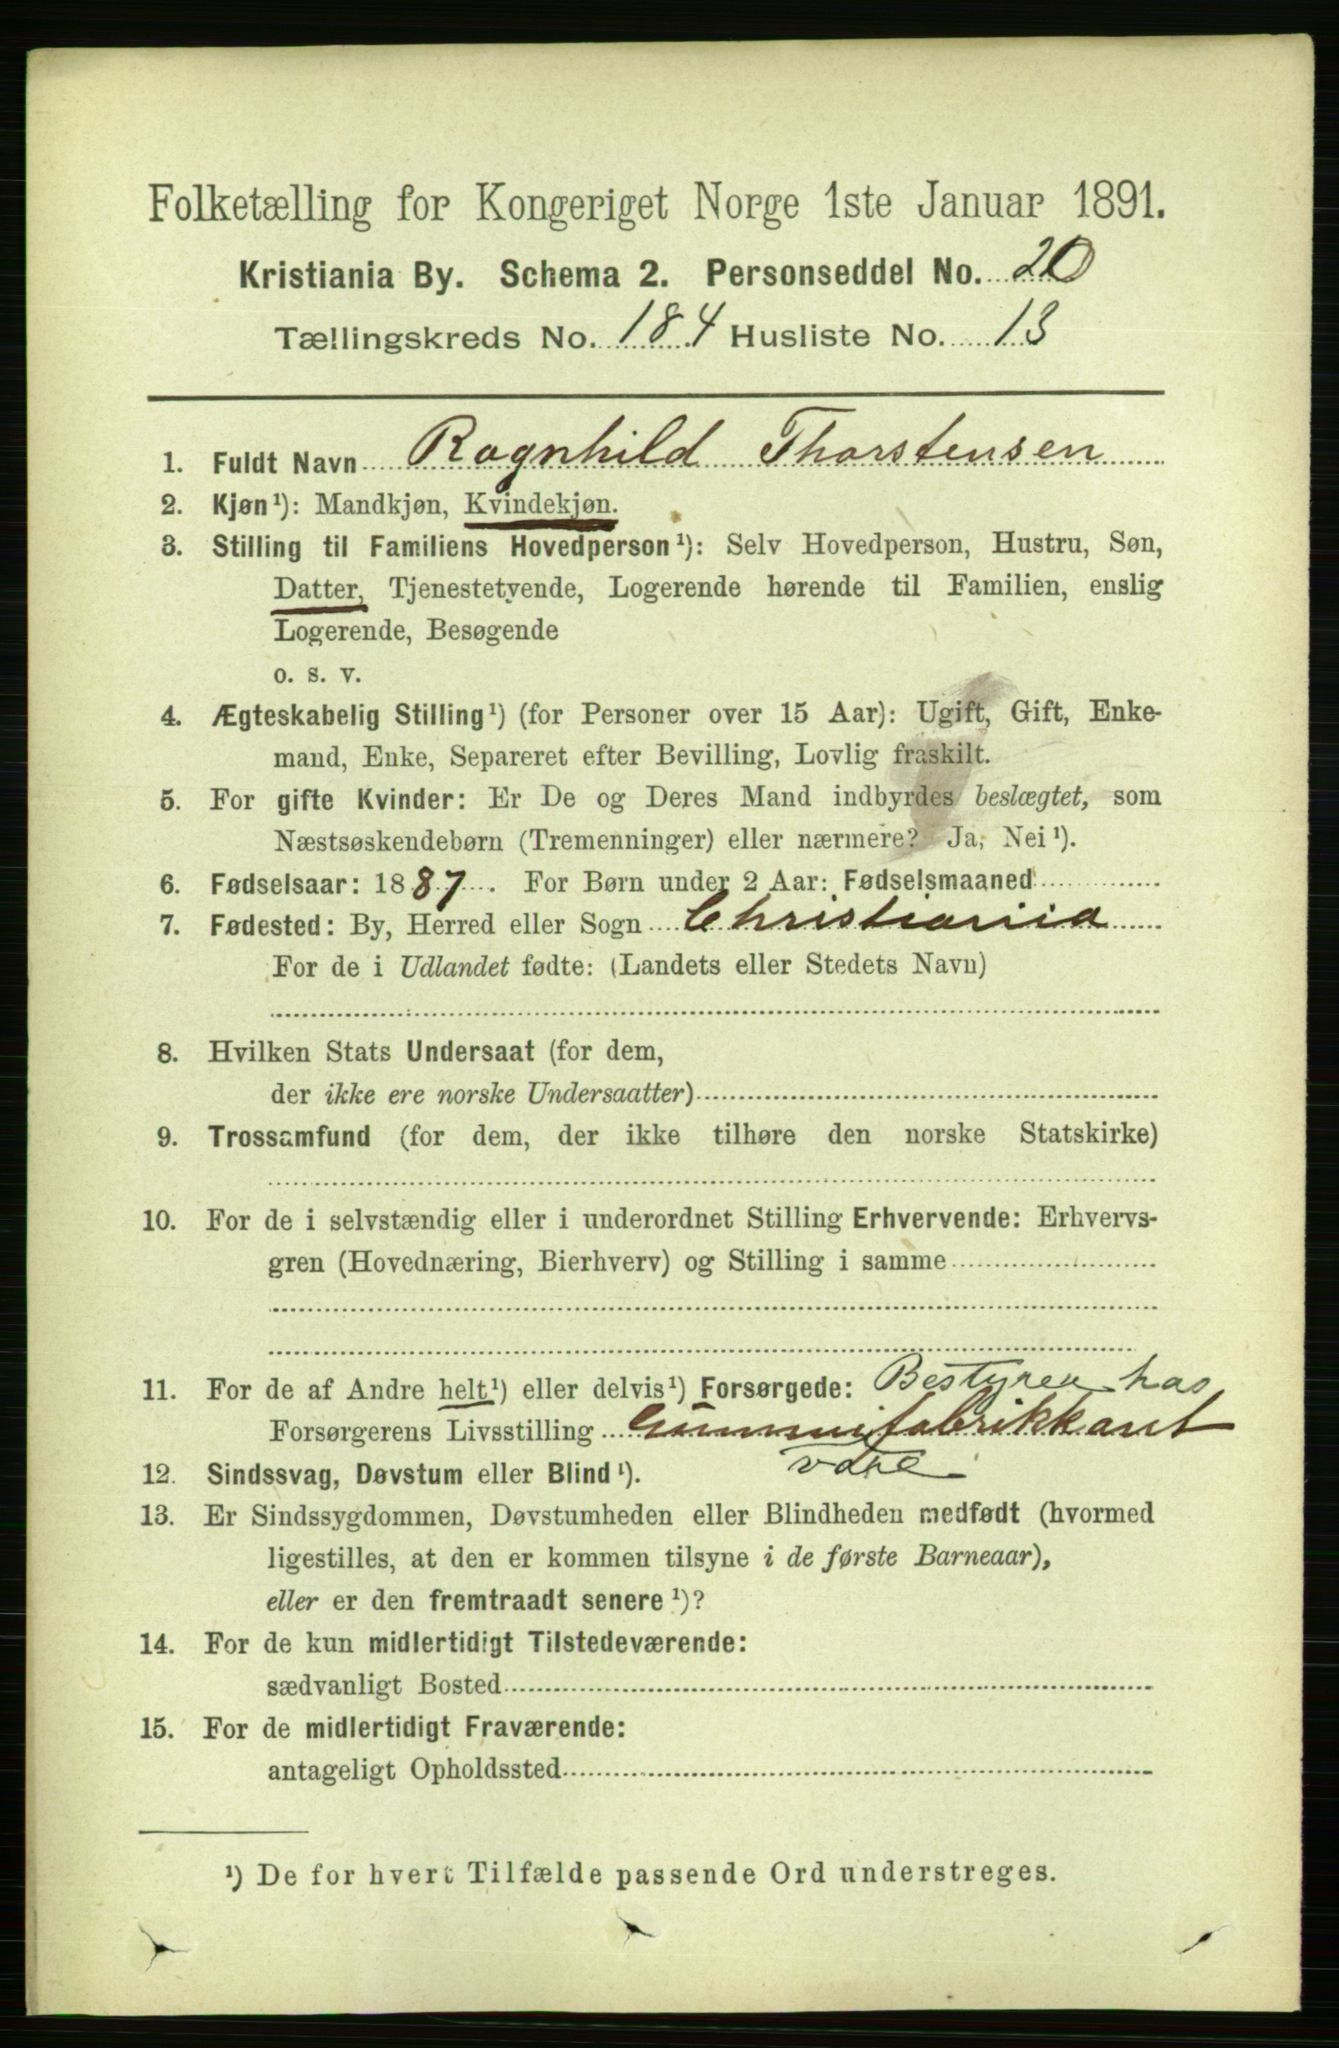 Folketælling for Kongeriget Norge 1ste Januar 1891.
Kristiania By. Schema 2. Personseddel No. 20
Tællingskreds No. 184 Husliste No. 13
1. Fuldt Navn Ragnhild Thorstensen
2. Kjøn¹): Mandkjøn, Kvindekjøn.
3. Stilling til Familiens Hovedperson¹): Selv Hovedperson, Hustru, Søn,
Datter, Tjenestetyende, Logerende hørende til Familien, enslig
Logerende, Besøgende
o. s. v.
4. Ægteskabelig Stilling¹) (for Personer over 15 Aar): Ugift, Gift, Enke-
mand, Enke, Separeret efter Bevilling, Lovlig fraskilt.
5. For gifte Kvinder: Er De og Deres Mand indbyrdes beslægtet, som
Næstsøskendebørn (Tremenninger) eller nærmere? Ja, Nei¹).
6. Fødselsaar: 1887. For Børn under 2 Aar: Fødselsmaaned
7. Fødested: By, Herred eller Sogn Christiania
For de i Udlandet fødte: (Landets eller Stedets Navn)
8. Hvilken Stats Undersaat (for dem,
der ikke ere norske Undersaatter)
9. Trossamfund (for dem, der ikke tilhøre den norske Statskirke)
10. For de i selvstændig eller i underordnet Stilling Erhvervende: Erhvervs-
gren (Hovednæring, Bierhverv) og Stilling i samme
11. For de af Andre helt¹) eller delvis¹) Forsørgede: Bestyrer hos
Forsørgerens Livsstilling Gummifabrikkant
vare
12. Sindssvag, Døvstum eller Blind¹).
13. Er Sindssygdommen, Døvstumheden eller Blindheden medfødt (hvormed
ligestilles, at den er kommen tilsyne i de første Barneaar),
eller er den fremtraadt senere¹)?
14. For de kun midlertidigt Tilstedeværende:
sædvanligt Bosted
15. For de midlertidigt Fraværende:
antageligt Opholdssted
¹) De for hvert Tilfælde passende Ord understreges.